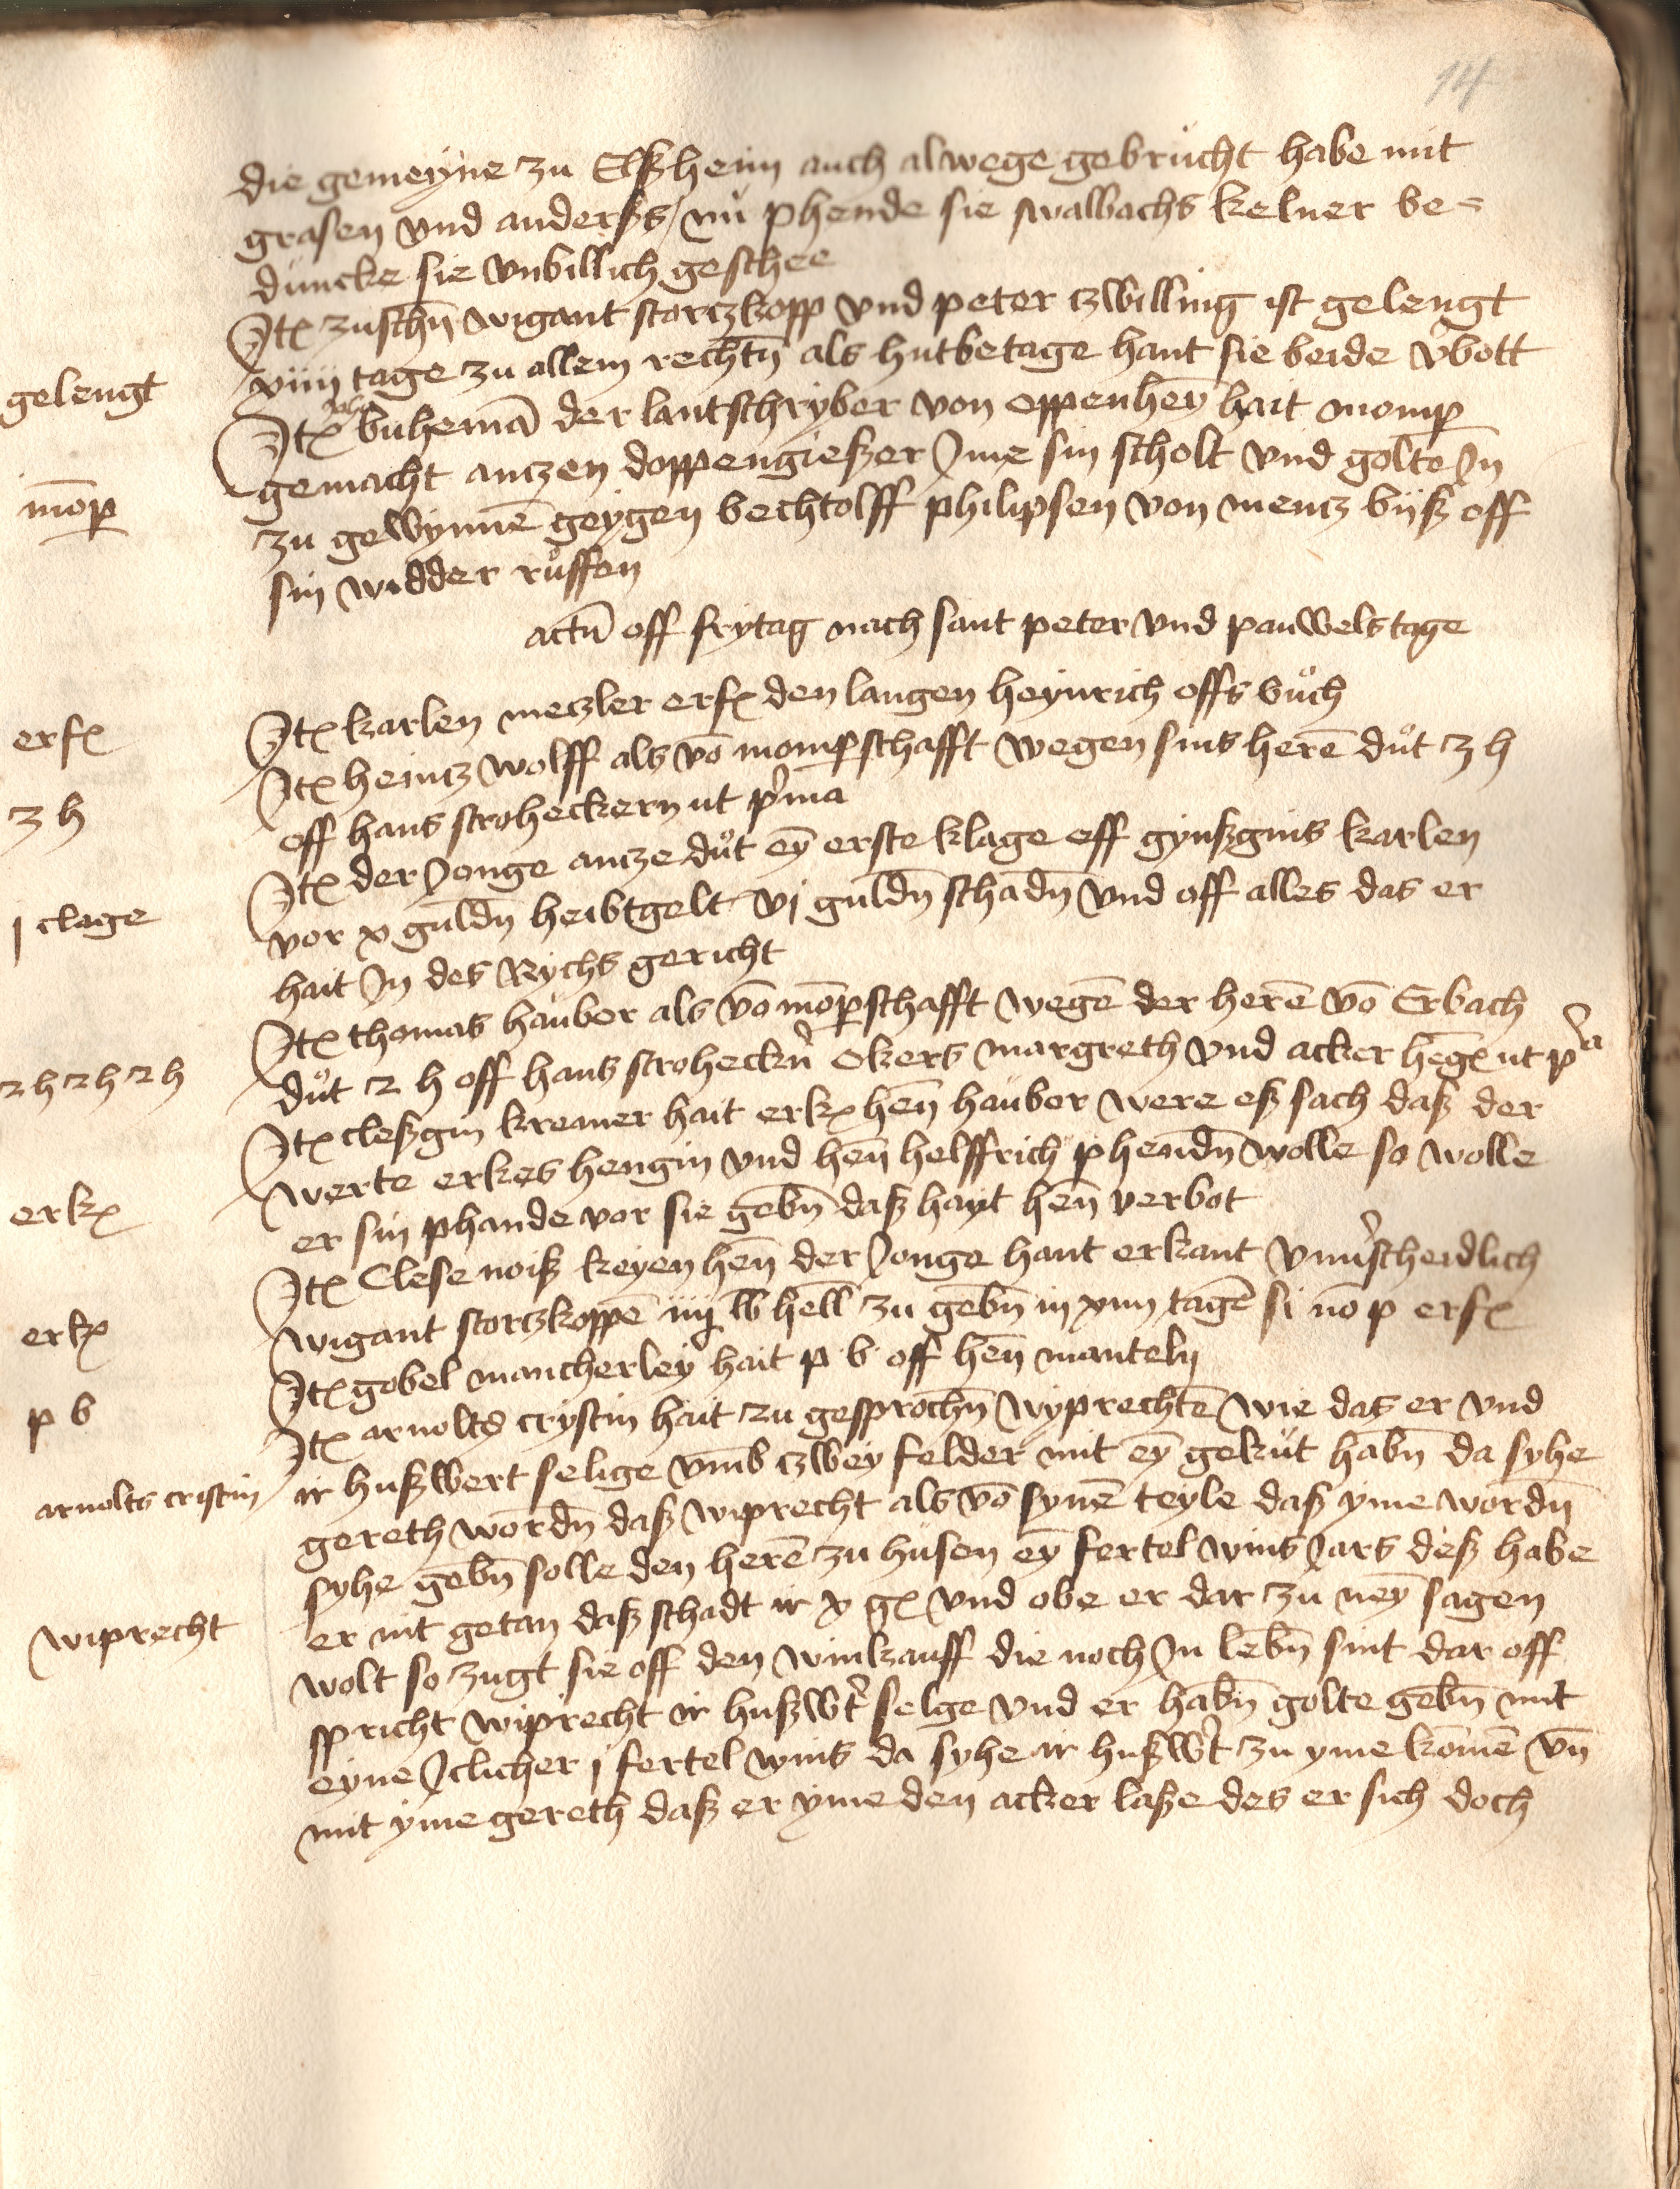 14
die gemeyne zu Elßheim auch alwege gebrucht habe mit
grasen vnd anderßs / nů phende sie swalbachs kelner be=
duncke sie vnbillich geschee
Jtem zuschn̄ wigant storczkopp vnd peter czwilling ist gelengt
gelengt
xiiij tage zu allem rechtn̄ als hutbetage hant sie beide v̉bott
Jtem buhemā der lantschryber von oppenheȳ hait momp̱
gemacht anczen doppengießer Jme sin scholt vnd golte Jn
mōp̱
zu gewynnē geygen bechtolff philipsen von mentz biß off
sin widder růffen
actū off frytag nach sant peter vnd pauwels tage
Jtem karlen meczler erf den langen heynrich offs bůch
erf
Jtem heintz wolff als vō momp̱schafft wegen sins herē důt 3 h
3 h
off hans stroheckern ut p̉ma
Jtem der Jonge ancze důt eȳ erste klage off gynßgins karlen
j clage
vor x guldn̄ heibtgelt vj guldn̄ schadn̄ vnd off alles das er
hait Jn des Rychs gericht
Jtem thomas haůber als vō mōp̱schafft wegē der herē vō Erbach
2 h 2 h 2 h
důt 2 h off hans stroheckn̉ Ekers margreth vnd acker heng ut p̉a
Jtem cleßgin kremer hait erk hen̄ haůber were eß sach daß der
werte erkes hengin vnd hen̄ helffrich phendn̄ wolle so wolle
erk
er sin phande vor sie gebn̄ daß hayt hen̄ verbot
Jtem Clese noiß keyen hen̄ der Jonge hant erkant vnu̓scheidlich
erk
wigant storczkoppē iiij lb hell̄ zu gebn̄ in xiiij tagē si nō p erf
Jtem gobel mancherley hait p b off hen̄ manteln
p b
Jtem arnolts crystin hait zu gesprochn̄ wyprechtē wie das er vnd
arnolts cristin
ir hußwert selige vmb czwey felder mit eȳ gekut habn̄ da syhe
gereth wordn̄ daß wiprecht als vō synē teyle daß yme wordn̄
syhe gebn̄ solle den herē zu husen eȳ fertel wins Jars deß habe
wiprecht
er nit getan daß schadt ir x g vnd obe er dar zu neȳ sagen
wolt so zugt sie off den winkauff die noch Jn lebn̄ sint dar off
spricht wiprecht ir hußwt̉ selge vnd er habn̄ golte gebn̄ mit
eyne Jclicher j fertel wins da syhe ir hußwt̉ zu yme komē vn̄
mit yme gereth daß er yme den acker laße des er sich doch